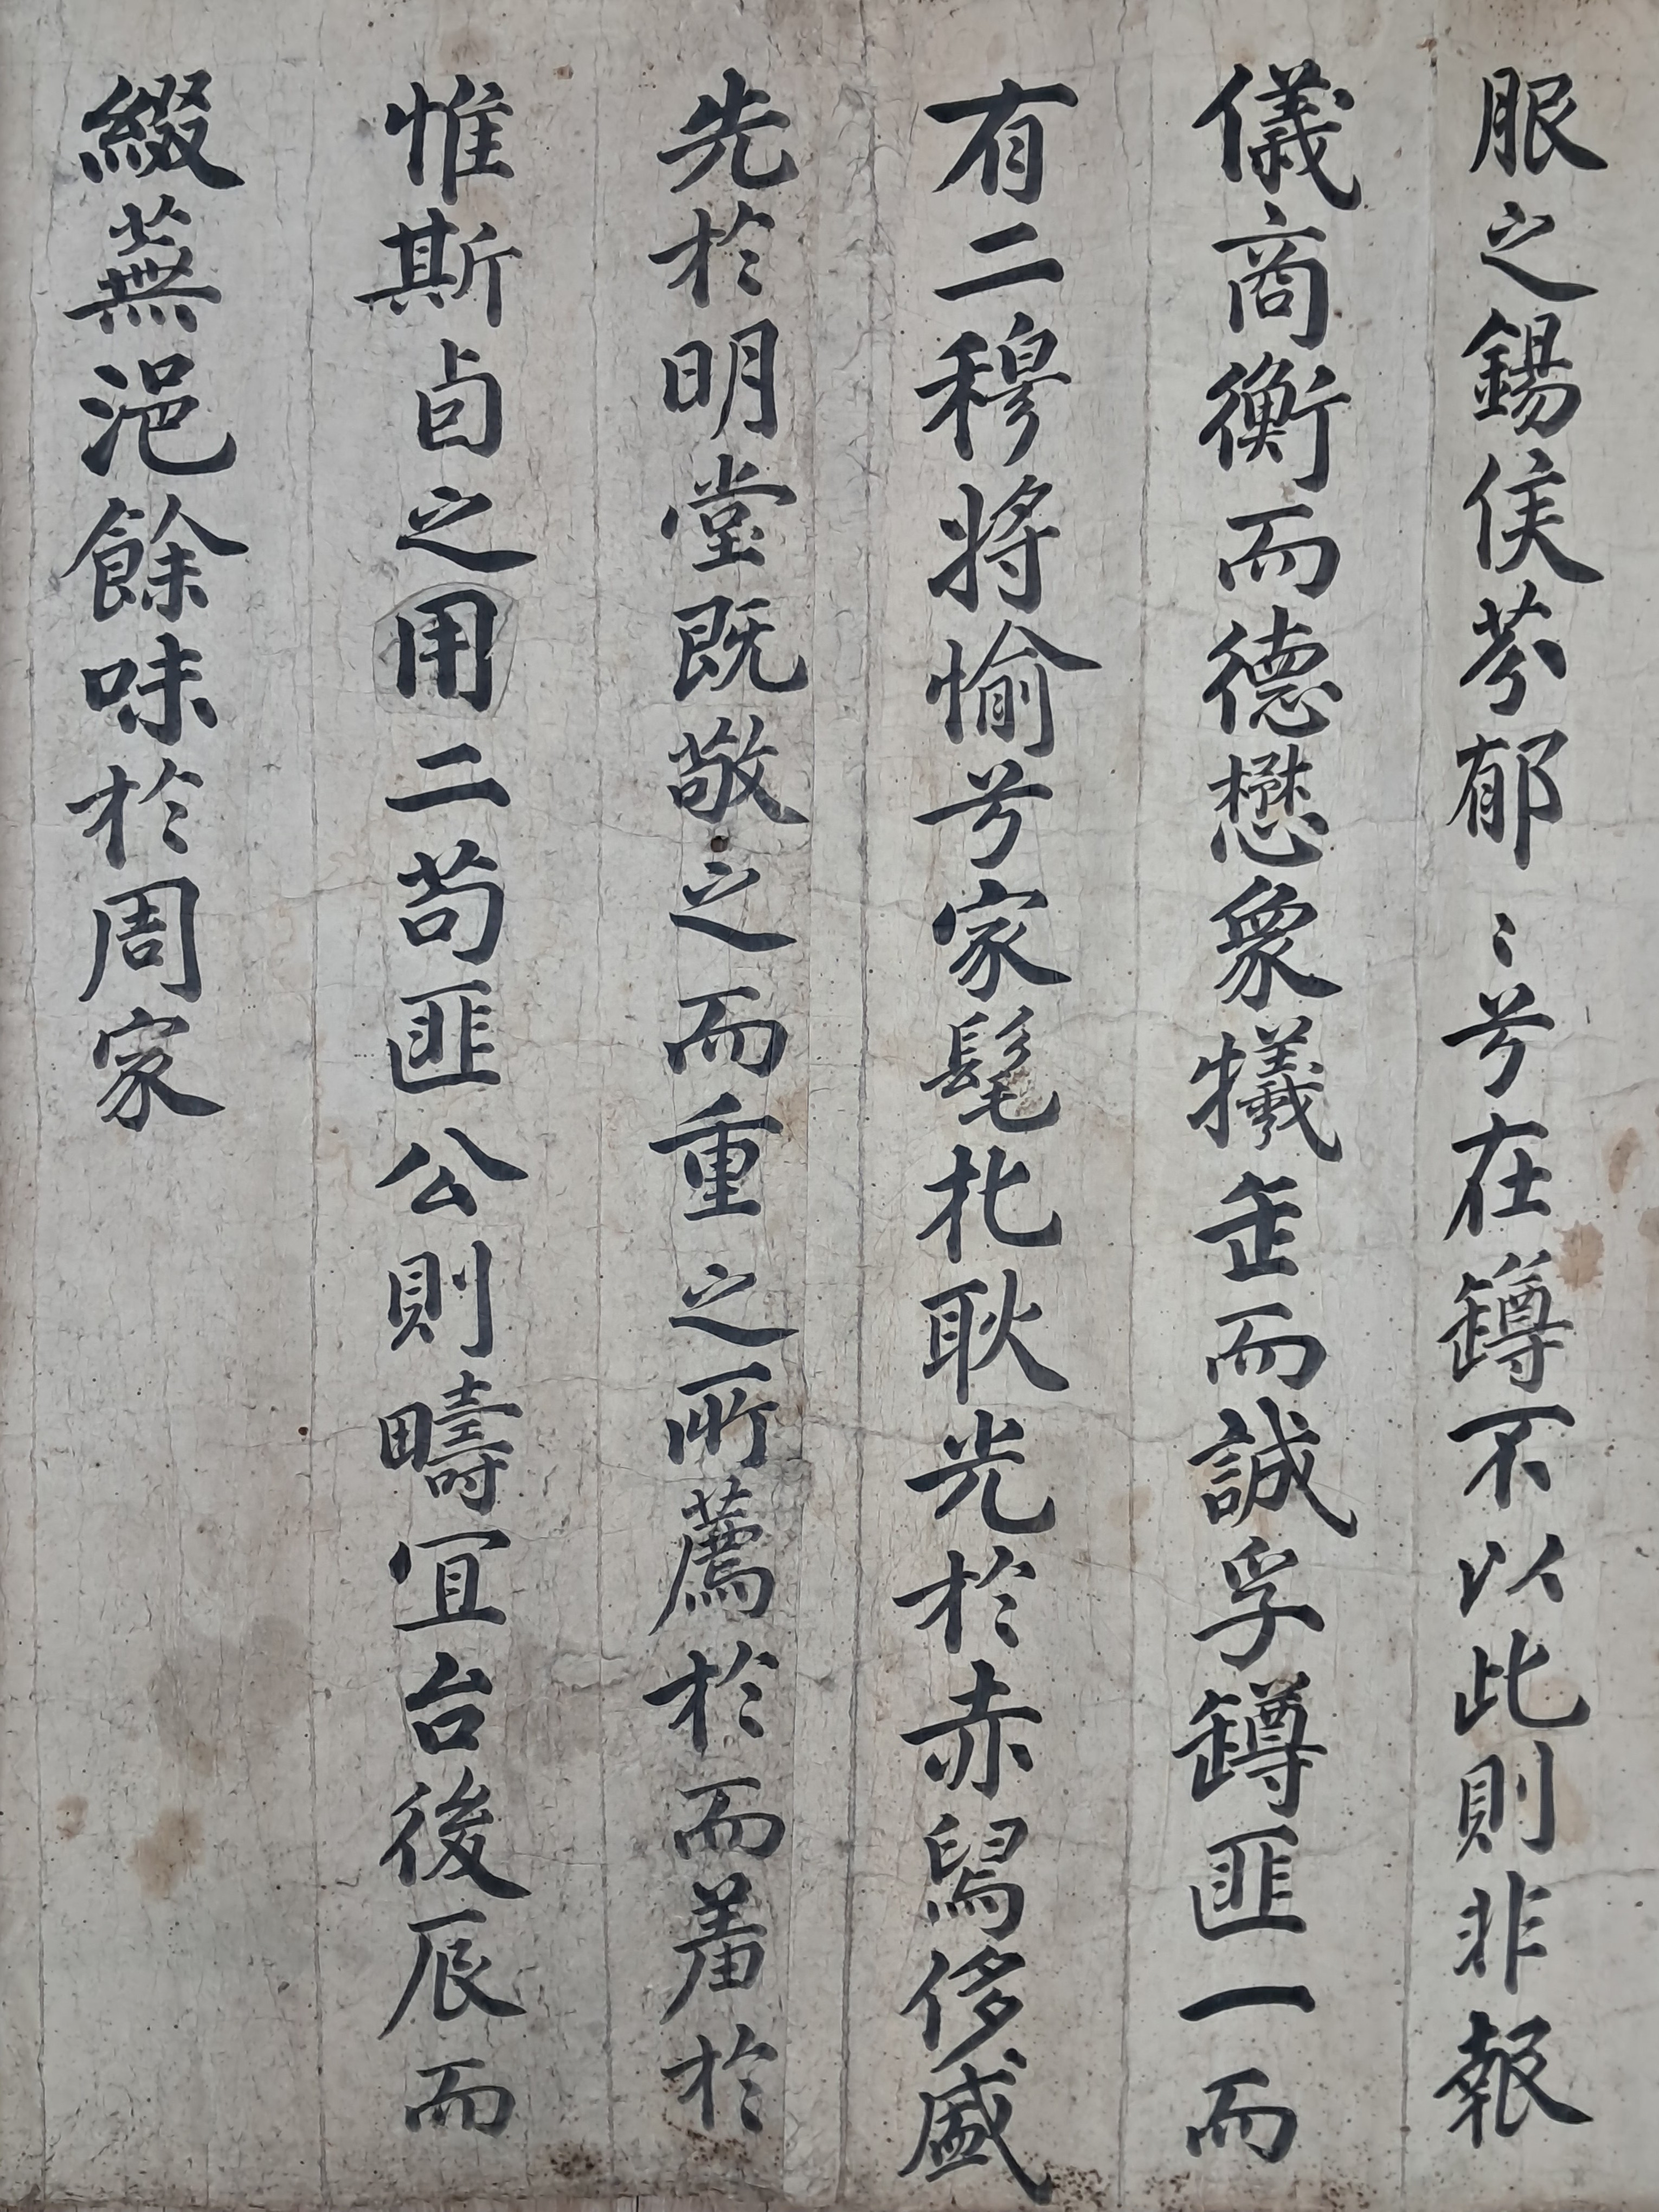 服之錫侯芬郁〻兮在罇不以此則非報
儀商衡而德懋衆犧缶而誠孚罇匪一而
有二穆將愉兮家髦北耿光於赤舄侈盛
先於明堂既敬之而重之所薦於而羞於
惟斯卣之用二苟匪公則疇宜台後辰而
綴蕪浥餘味於周家